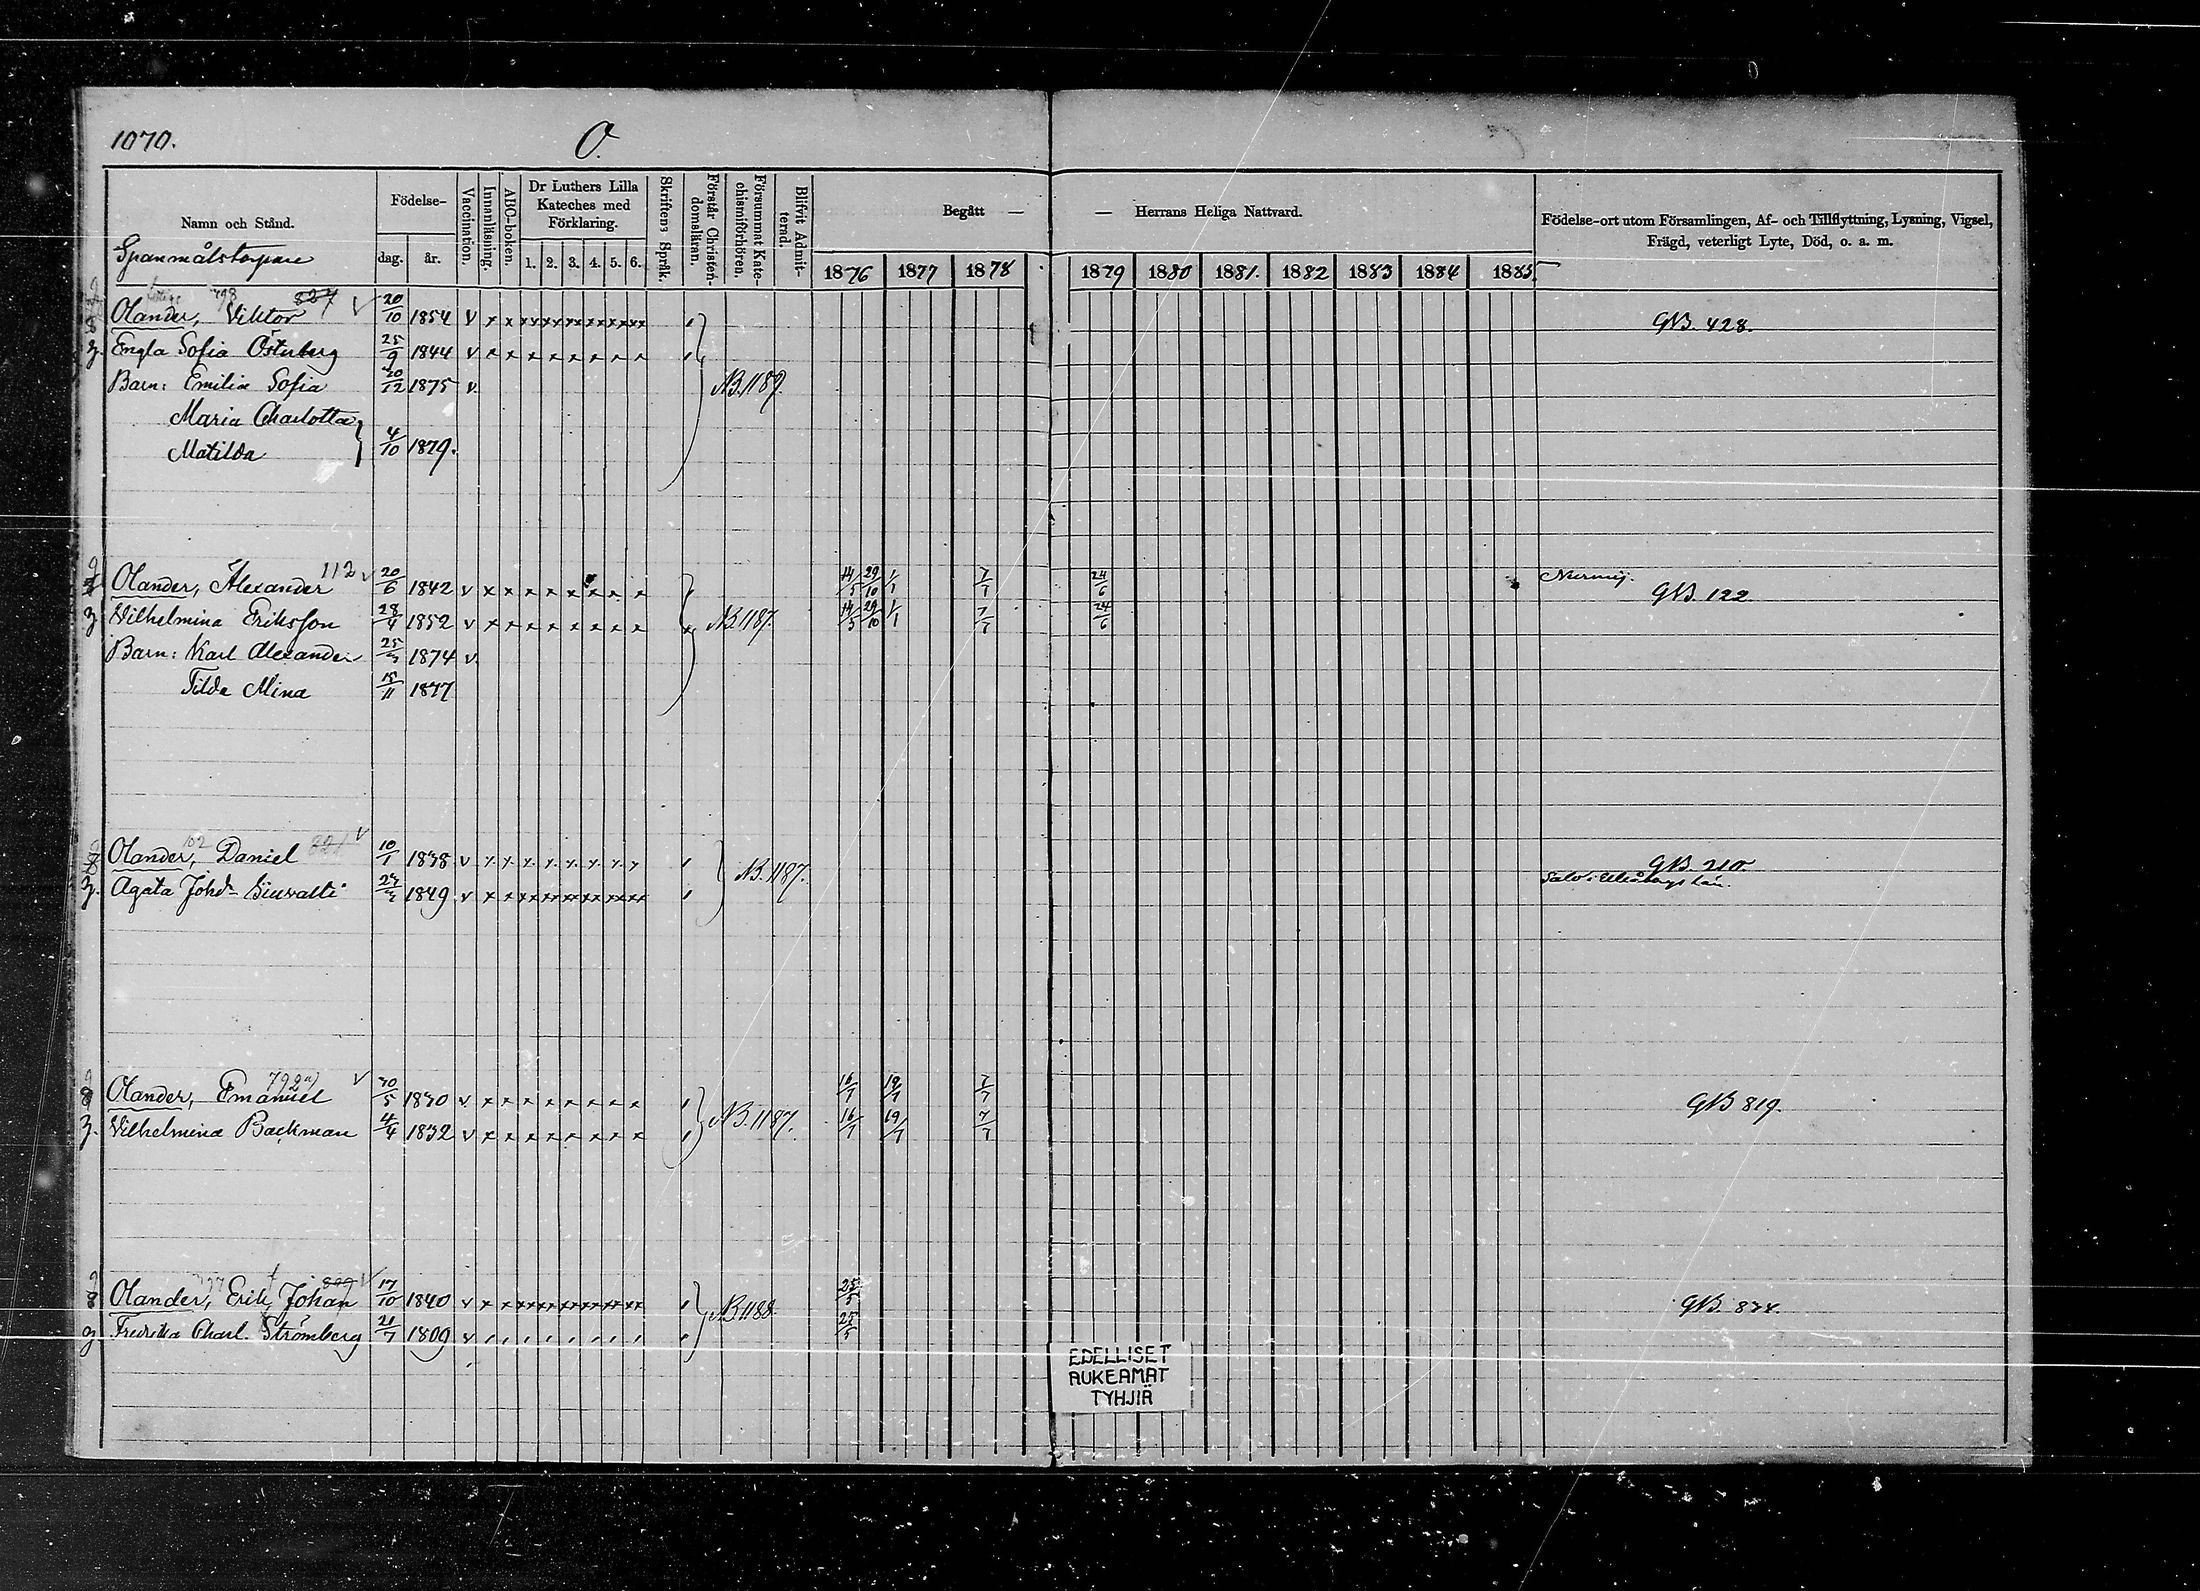 1070.
O.
Namn och Stånd.
Födelse-
dag. år.
Vaccination.
Innanläsning.
ABC-boken.
Dr Luthers Lilla
Kateches med
Förklaring.
1. 2. 3. 4. 5. 6.
Skriftens Språk.
Förstår Christen-
domsläran.
Försummat Kate-
chismiförhören.
Blifvit Admit-
terad.
Begått —
— Herrans Heliga Nattvard.
1876 1877 1878 1879 1880 1881. 1882 1883 1884 1885
Födelse-ort utom Församlingen, Af- och Tillflyttning, Lysning, Vigsel,
Frägd, veterligt Lyte, Död, o. a. m.
Spanmålstorpare
Olander, Viktor 827 20/10 1854 GB. 428.
Engla Sofia Österberg 25/9 1844
Barn: Emilia Sofia 20/12 1875 NB. 1189.
Maria Charlotta
Matilda 4/10 1879.
Olander, Alexander 112 20/6 1842 14/5 29/10 1/1 7/7 24/6 GB. 122
Vilhelmina Eriksson 28/4 1852 NB. 1187. 14/5 29/10 1/1 7/7 24/6
Barn: Karl Alexander 1874
Tilda Mina 15/11 1877
Olander, Daniel 102 10/1 1838 NB. 1187. GB. 210.
Agata Johdr 1849 Uleåborgs län.
Olander, Emanuel 792 30/5 1830 16/7 19/7 7/7 GB 819.
Vilhelmina Backman 4/4 1832 NB. 1187. 16/7 19/7 7/7
Olander, Erik Johan 17/10 1840 NB 1188 25/5 GB. 834.
Fredrika Charl. Strömberg 21/7 1809 25/5
EDELLISET
AUKEAMAT
TYHJIÄ